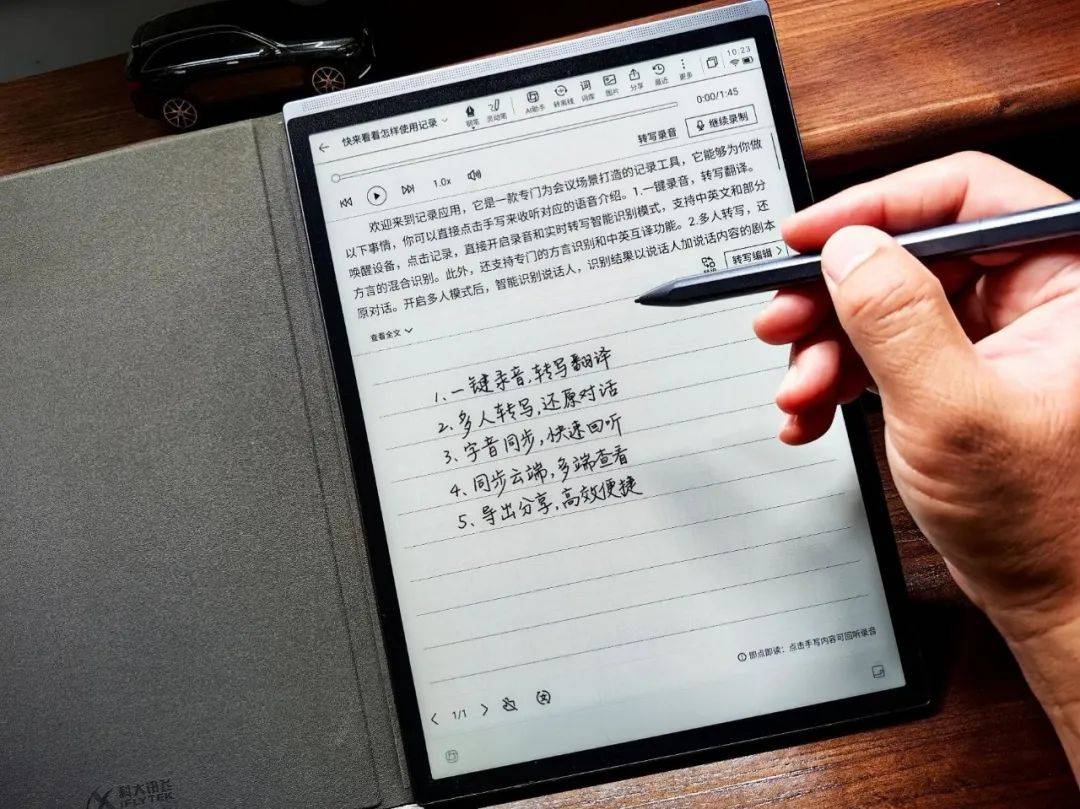 10:23
快来看看怎样使用记录
钢笔 灵动笔 AI助手 转离线 词库 图片 分享 最近 更多
0:00/1:45
1.0x 转写录音 继续录制
欢迎来到记录应用，它是一款专门为会议场景打造的记录工具，它能够为你做
以下事情，你可以直接点击手写来收听对应的语音介绍。1.一键录音，转写翻译。
唤醒设备，点击记录，直接开启录音和实时转写智能识别模式，支持中英文和部分
方言的混合识别。此外，还支持专门的方言识别和中英互译功能。2.多人转写，还
原对话。开启多人模式后，智能识别说话人，识别结果以说话人加说话内容的剧本
转写编辑
查看全文
1、一键录音，转写翻译
2、多人转写，还原对话
3、字音同步，快速回听
4、同步云端，多端查看
5、导出分享，高效便捷
即点即读：点击手写内容可回听录音
1/1
科大讯飞
iFLYTEK